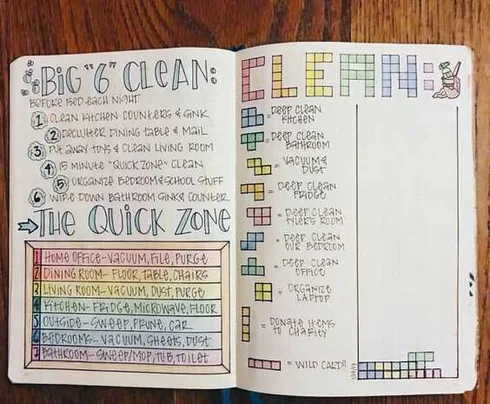 BIG "6" CLEAN:
BEFORE BED EACH NIGHT
1 CLEAN KITCHEN COUNTERS & SINK
2 DECLUTTER DINING TABLE & MAIL
3 PUT AWAY TOYS & CLEAN LIVING ROOM
4 15 MINUTE "QUICK ZONE" CLEAN
5 ORGANIZE BEDROOM & SCHOOL STUFF
6 WIPE DOWN BATHROOM SINK & COUNTER
THE QUICK ZONE
1 HOME OFFICE - VACUUM, FILE, PURGE
2 DINING ROOM - FLOOR, TABLE, CHAIRS
3 LIVING ROOM - VACUUM, DUST, PURGE
4 KITCHEN - FRIDGE, MICROWAVE, FLOOR
5 OUTSIDE - SWEEP, PRUNE, CAR
6 BEDROOMS - VACUUM, SHEETS, DUST
7 BATHROOM - SWEEP/MOP, TUB, TOILET
CLEAN:
= DEEP CLEAN
KITCHEN
= DEEP CLEAN
BATHROOM
= VACUUM &
DUST
= DEEP CLEAN
FRIDGE
= DEEP CLEAN
ROOM
= DEEP CLEAN
OUR BEDROOM
= DEEP CLEAN
OFFICE
= ORGANIZE
LAPTOP
= DONATE ITEMS
TO CHARITY
= WILD CARD!!